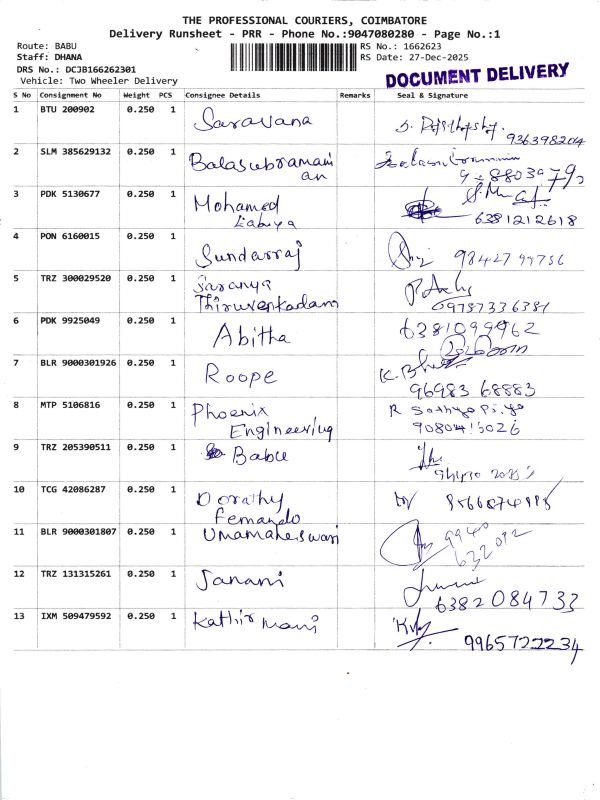 THE PROFESSIONAL COURIERS, COIMBATORE
Delivery Runsheet - PRR - Phone No.:9047080280 - Page No.:1
Route: BABU
RS No.: 1662623
Staff: DHANA
RS Date: 27-Dec-2025
DRS No.: DCJB166262301
Vehicle: Two Wheeler Delivery
DOCUMENT DELIVERY
S No Consignment No Weight PCS Consignee Details Remarks Seal & Signature
1 BTU 200902 0.250 1 Saravana
936398204
2 SLM 385629132 0.250 1 Balasubramani
an
3 PDK 5130677 0.250 1 Mohamed
6381212618
4 PON 6160015 0.250 1 Sundarraj
5 TRZ 300029520 0.250 1 Saranya
Thiruvenkadam
09787336381
6 PDK 9925049 0.250 1 Abitha 6381099962
7 BLR 9000301926 0.250 1 Roope
96983 68883
8 MTP 5106816 0.250 1 Phoenix R Sathya Priya
Engineering
9 TRZ 205390511 0.250 1 Babu
10 TCG 42086287 0.250 1 Dorathy
Fernando
11 BLR 9000301807 0.250 1 Umamaheswari 9940
632092
12 TRZ 131315261 0.250 1 Janani
6382084733
13 IXM 509479592 0.250 1 Kathir mani
9965722234